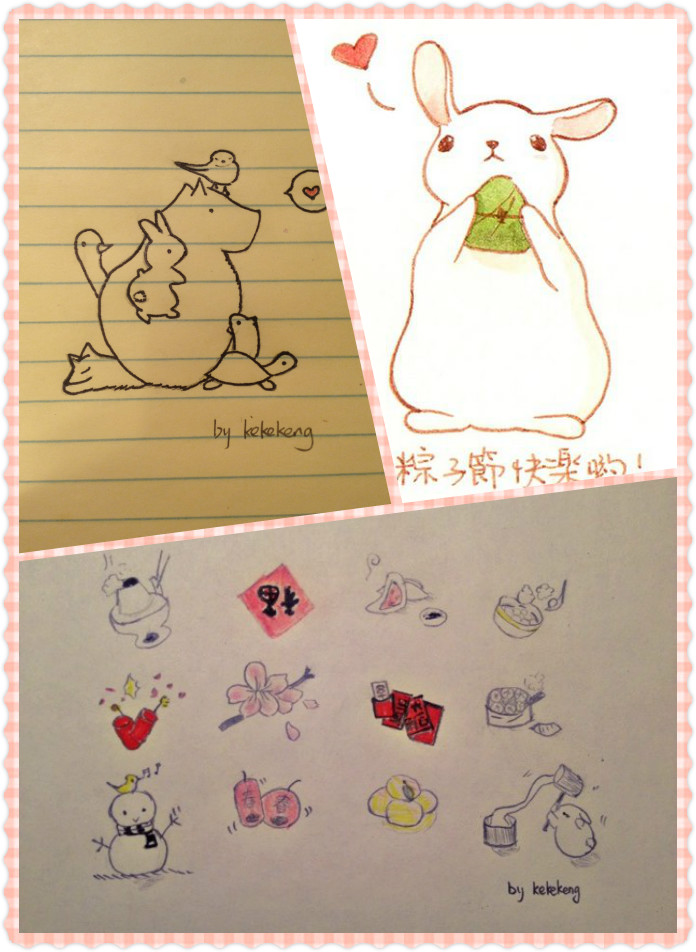 by kekekeng
粽子節快樂喲!
福
春
by kekekeng